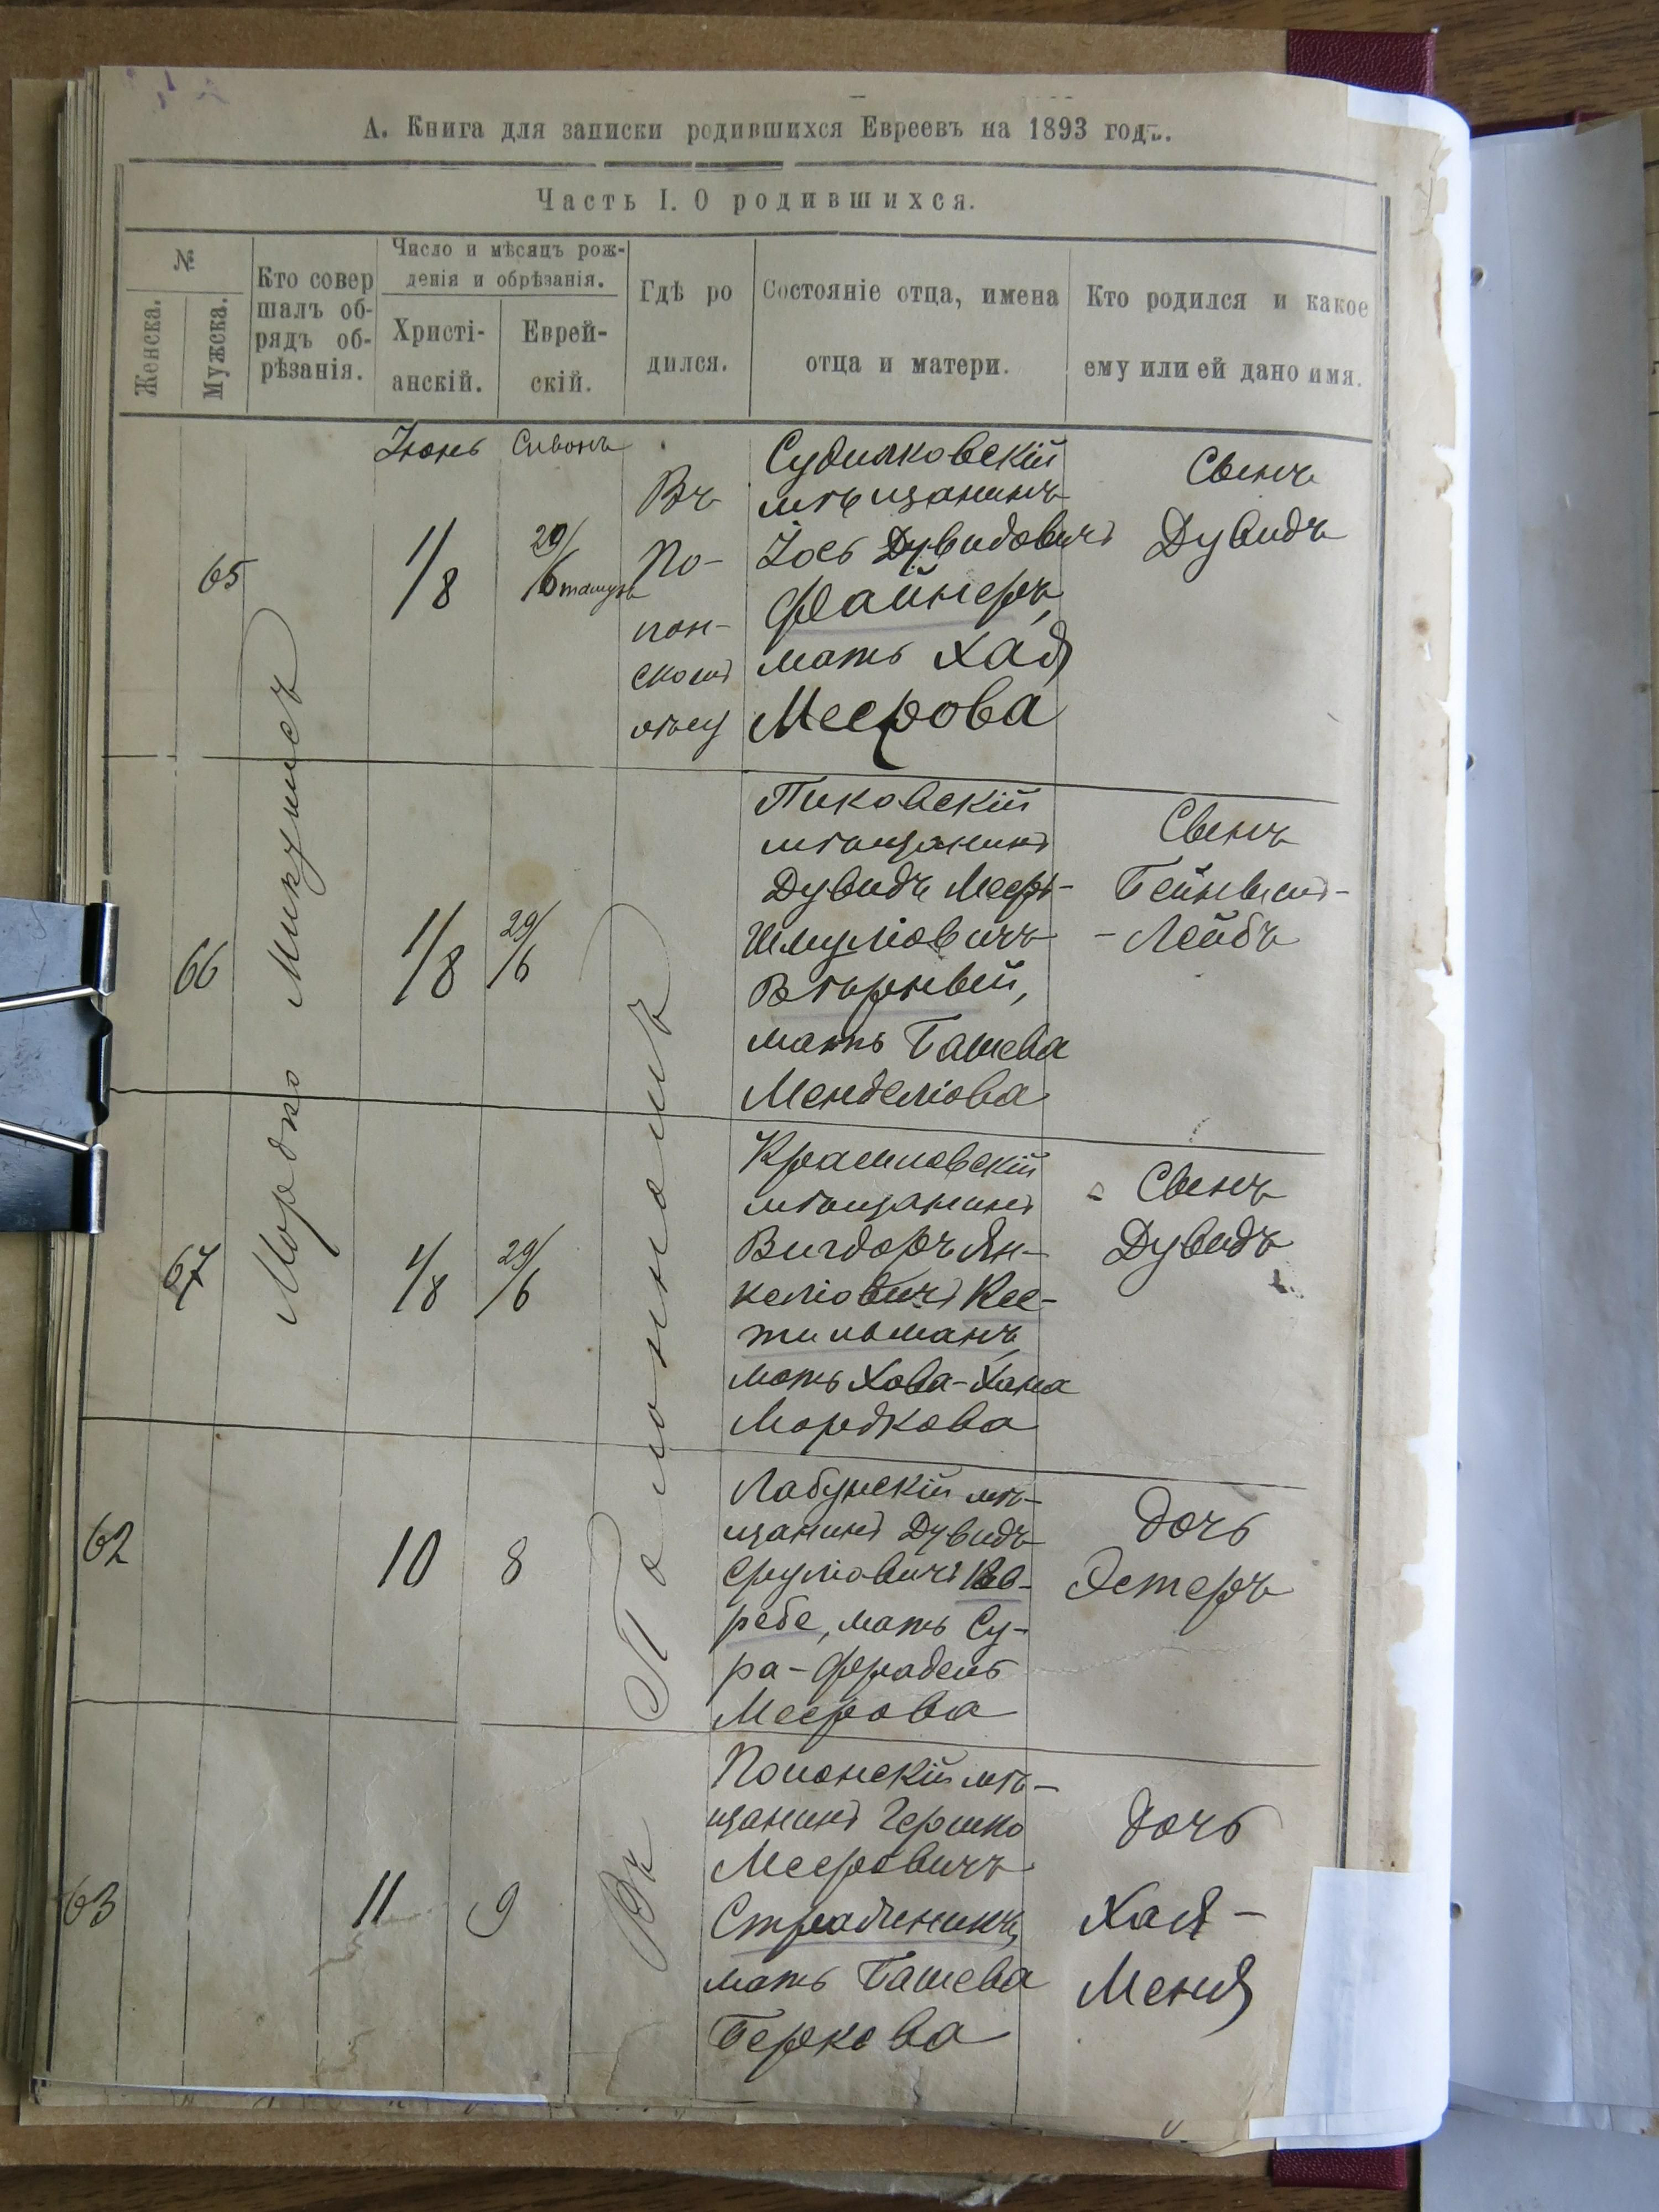 А. Книга для записки родившихся Евреевъ на 1893 годъ.
Часть I. О родившихся.
№
Женска.
Мужска.
Кто совер
шалъ об-
рядъ об-
рѣзанія.
Число и мѣсяцъ рож-
денія и обрѣзанія.
Христі-
анскій.
Еврей-
скій.
Гдѣ ро
дился.
Состояніе отца, имена
отца и матери.
Кто родился и какое
ему или ей дано имя.
Мордко
Іюнь
Сивонъ
65
1/8
29/6 тамузъ
Въ
По-
лон-
скомъ
Судилковскій
мѣщанинъ
Іось Дувидовичъ
Файнеръ,
мать Хая
Меерова
Сынъ
Дувидъ
66
1/8
29/6
Въ Полонномъ
Пиковскій
мѣщанинъ
Дувидъ Меер-
Шмуліовичъ
мать Башева
Менделіова
Сынъ
-Лейбъ
67
1/8
29/6
мѣщанинъ
Вигдоръ Ян-
келіовичъ Кес-
тильманъ,
мать Хова-Хана
Мордкова
Сынъ
Дувидъ
62
10
8
Лабунскій мѣ-
щанинъ Дувидъ
Сруліовичъ
ребе, мать Су-
ра-Фрадель
Меерова
дочь
Эстеръ
63
11
9
Полонскій мѣ-
щанинъ Гершко
Мееровичъ
мать Башева
Беркова
дочь
Хая-
Меня